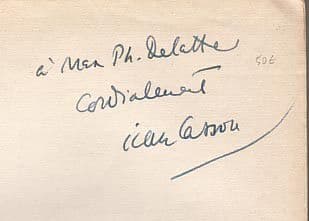 à Max Ph. Delatte
50€
Cordialement
Jean Cassou